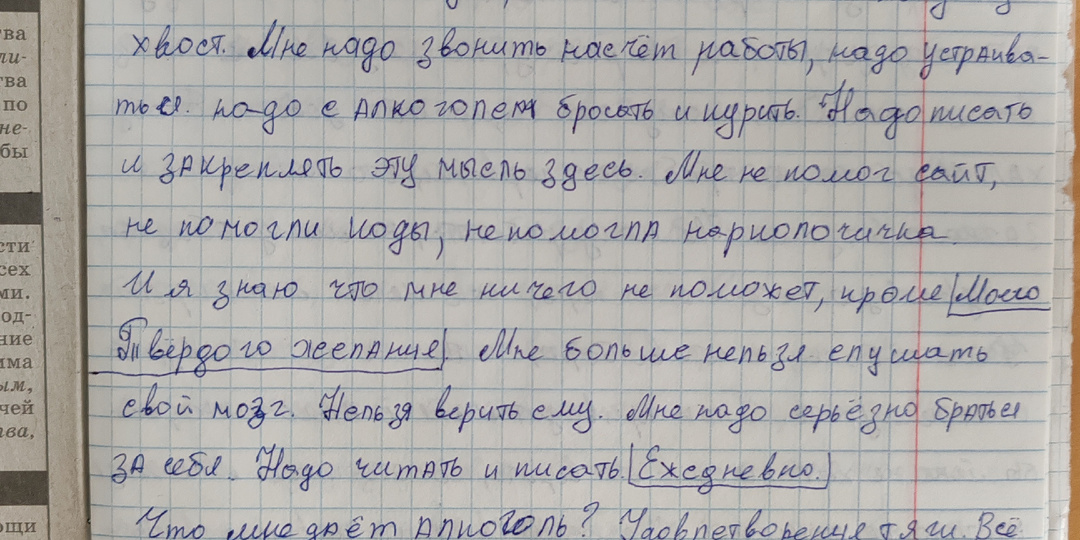 хвост. Мне надо звонить насчёт работы, надо устраива-
ться. надо с алкоголем бросать и курить. Надо писать
и закреплять эту мысль здесь. Мне не помог сайт,
не помогли коды, не помогла наркологичка.
И я знаю что мне ничего не поможет, кроме Моего
Твёрдого желания Мне больше нельзя слушать
свой мозг. Нельзя верить ему. Мне надо серьёзно браться
за себя. Надо читать и писать. Ежедневно.
Что мне даёт алкоголь? Удовлетворение тяги. Всё
тва
ли-
тва
по
не-
бы
сти
сех
ми.
од-
ние
мма
ым,
чей
тва,
ощи